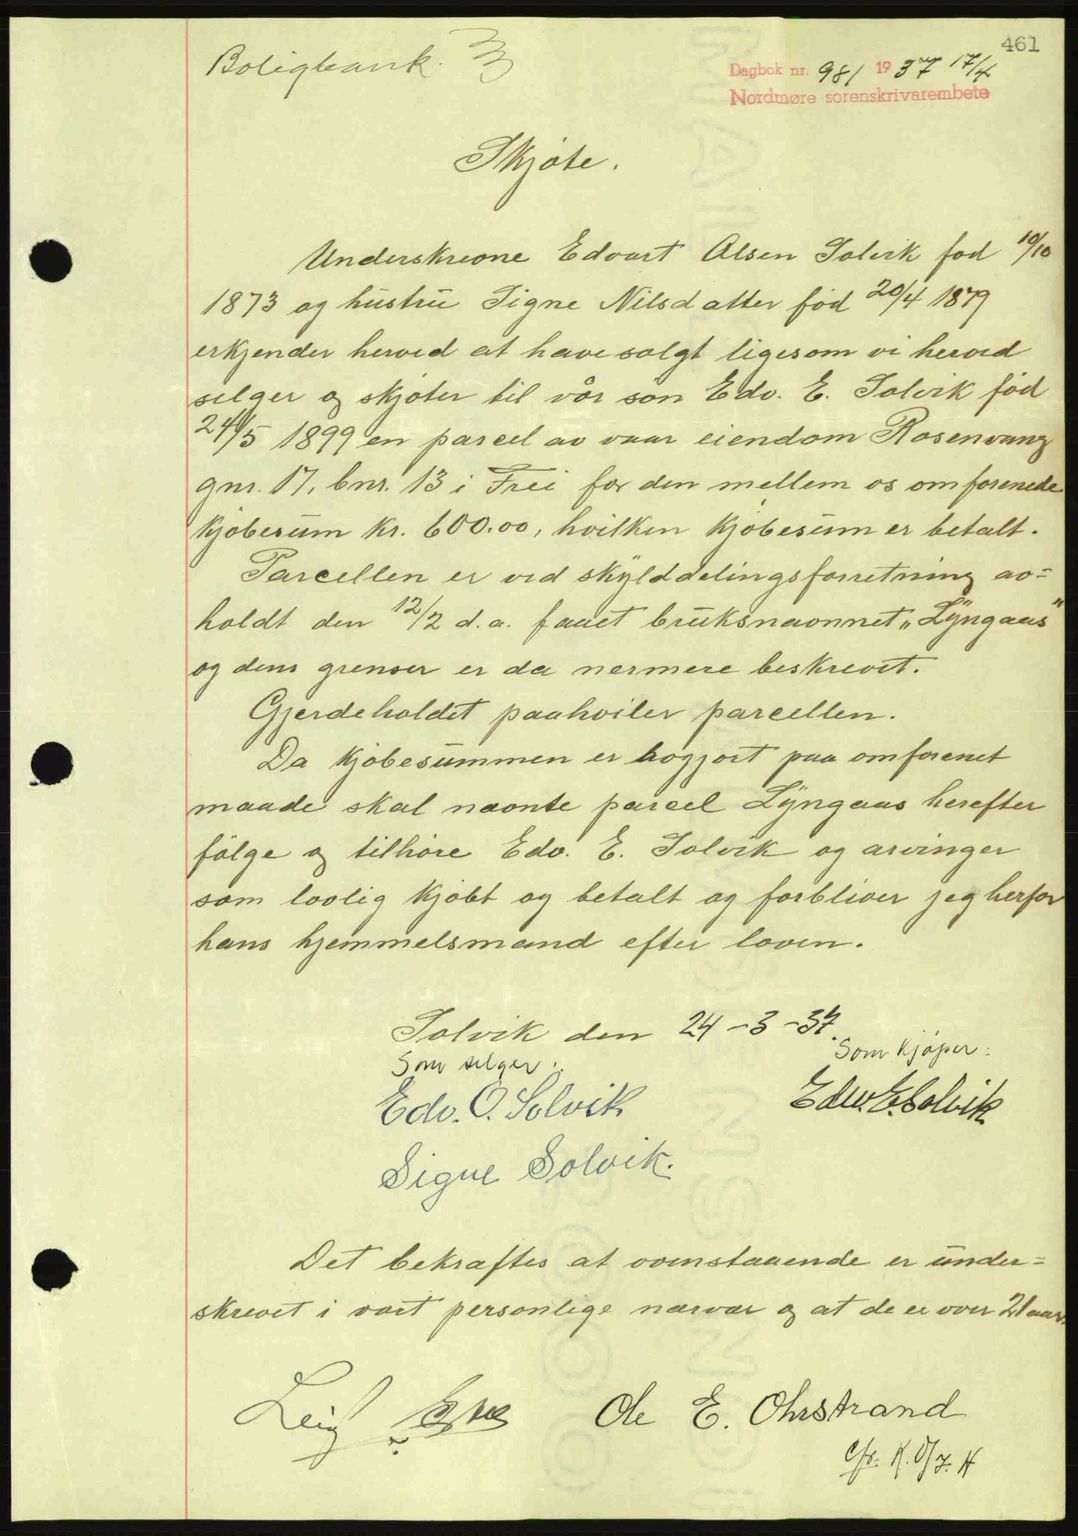 461
Boligbank.
Dagbok nr. 981 1937 17/4
Nordmøre sorenskrivarembete
Skjøte.
Underskrevne Edvart Olsen Solvik fød 10/10
1873 og hustru Signe Nilsdatter fød 20/4 1879
erkjender herved at have solgt ligesom vi herved
selger og skjøter til vår søn Edv. E. Solvik fød
24/5 1899 en parcel av vaar eiendom Rosenvang
gnr. 17, bnr. 13 i Frei for den mellem os omforenede
kjøbesum kr. 600.00, hvilken kjøbesum er betalt.
Parcellen er ved skylddelingsforretning av=
holdt den 12/2 d.a. faaet bruksnavnnet „Lyngaas"
og dens grenser er da nermere beskrevet.
Gjerdeholdet paahviler parcellen.
Da kjøbesummen er avgjort paa omforenet
maade skal nævnte parcel Lyngaas herefter
følge og tilhøre Edv. E. Solvik og arvinger
som lovlig kjøbt og betalt og forbliver jeg herfor
hans hjemmelsmand efter loven.
Solvik den 24-3-37.
Som selger: Som kjøper:
Edv. O. Solvik Edv. E. Solvik
Signe Solvik.
Det bekræftes at ovenstaaende er under=
skrevet i vort personlige nærvær og at de er over 21 aar.
Leif Ole E. Ohrstrand